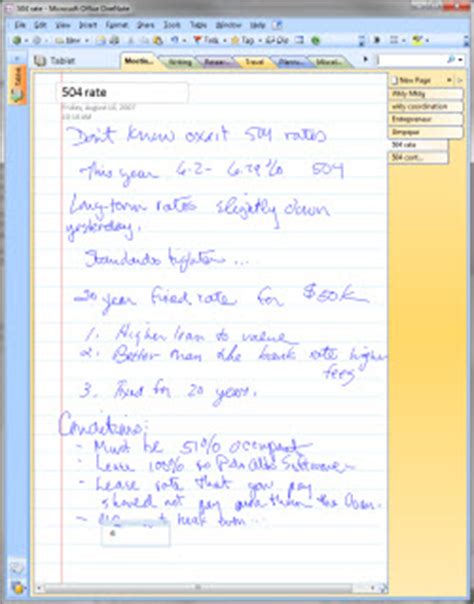 504 rate - Microsoft Office OneNote
File Edit View Insert Format Tools Table Window Help
Back
Tag
Tablet
Meetin...
Writing
Resear...
Travel
Plannin...
Miscel...
Tablet
New Page
Wkly Mktg
wkly coordination
Entrepreneur
504 rate
504 cont...
504 rate
Friday, August 10, 2007
10:14 AM
Don't know exact 504 rates
This year 6.2- 6.29% 504
Long-term rates slightly down
yesterday.
Standards tighten ...
20 year fixed rate for $50K
1. Higher loan to value
2. Better than the bank rate higher
fees
3. Fixed for 20 years.
Conditions:
- Must be 51% occupant
- Lease 100% to Palo Alto Software
- Lease rate that you pay
should not pay more than the loan.
- break even ...